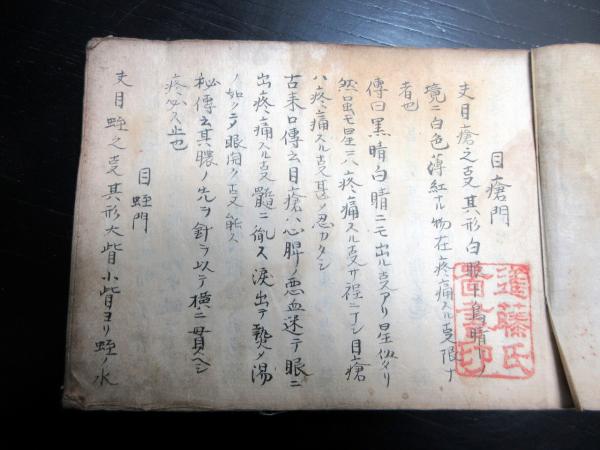 目瘡門
夫目瘡之事其形白眼ト烏睛ノ
境ニ白色薄紅ナル物在疼痛スル事限ナ
者也
傳曰黒睛白睛ニモ出ル事アリ星似タリ
然虽モ星ハ疼痛スル事サ程ニナシ目瘡
ハ疼痛スル事甚ノ忍カタシ
古来口傳云目瘡ハ心脾ノ悪血迷テ眼ニ
出疼痛スル事髓ニ徹ス涙出テ熱メ湯
ノ如クニメ眼開ク事能ス
秘傳云其膿ノ先ヲ針ヲ以テ横ニ貫ヘシ
疼必ス止也
目蛭門
夫目蛭之事其形大眥小眥ヨリ蛭ノ水
進藤氏